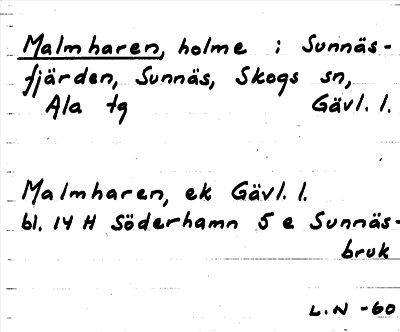 Malmharen, holme i Sunnäs-
fjärden, Sunnäs, Skogs sn,
Ala tg Gävl. l.
Malmharen, ek Gävl. l.
bl. 14 H Söderhamn 5 e Sunnäs-
bruk
L.N -60